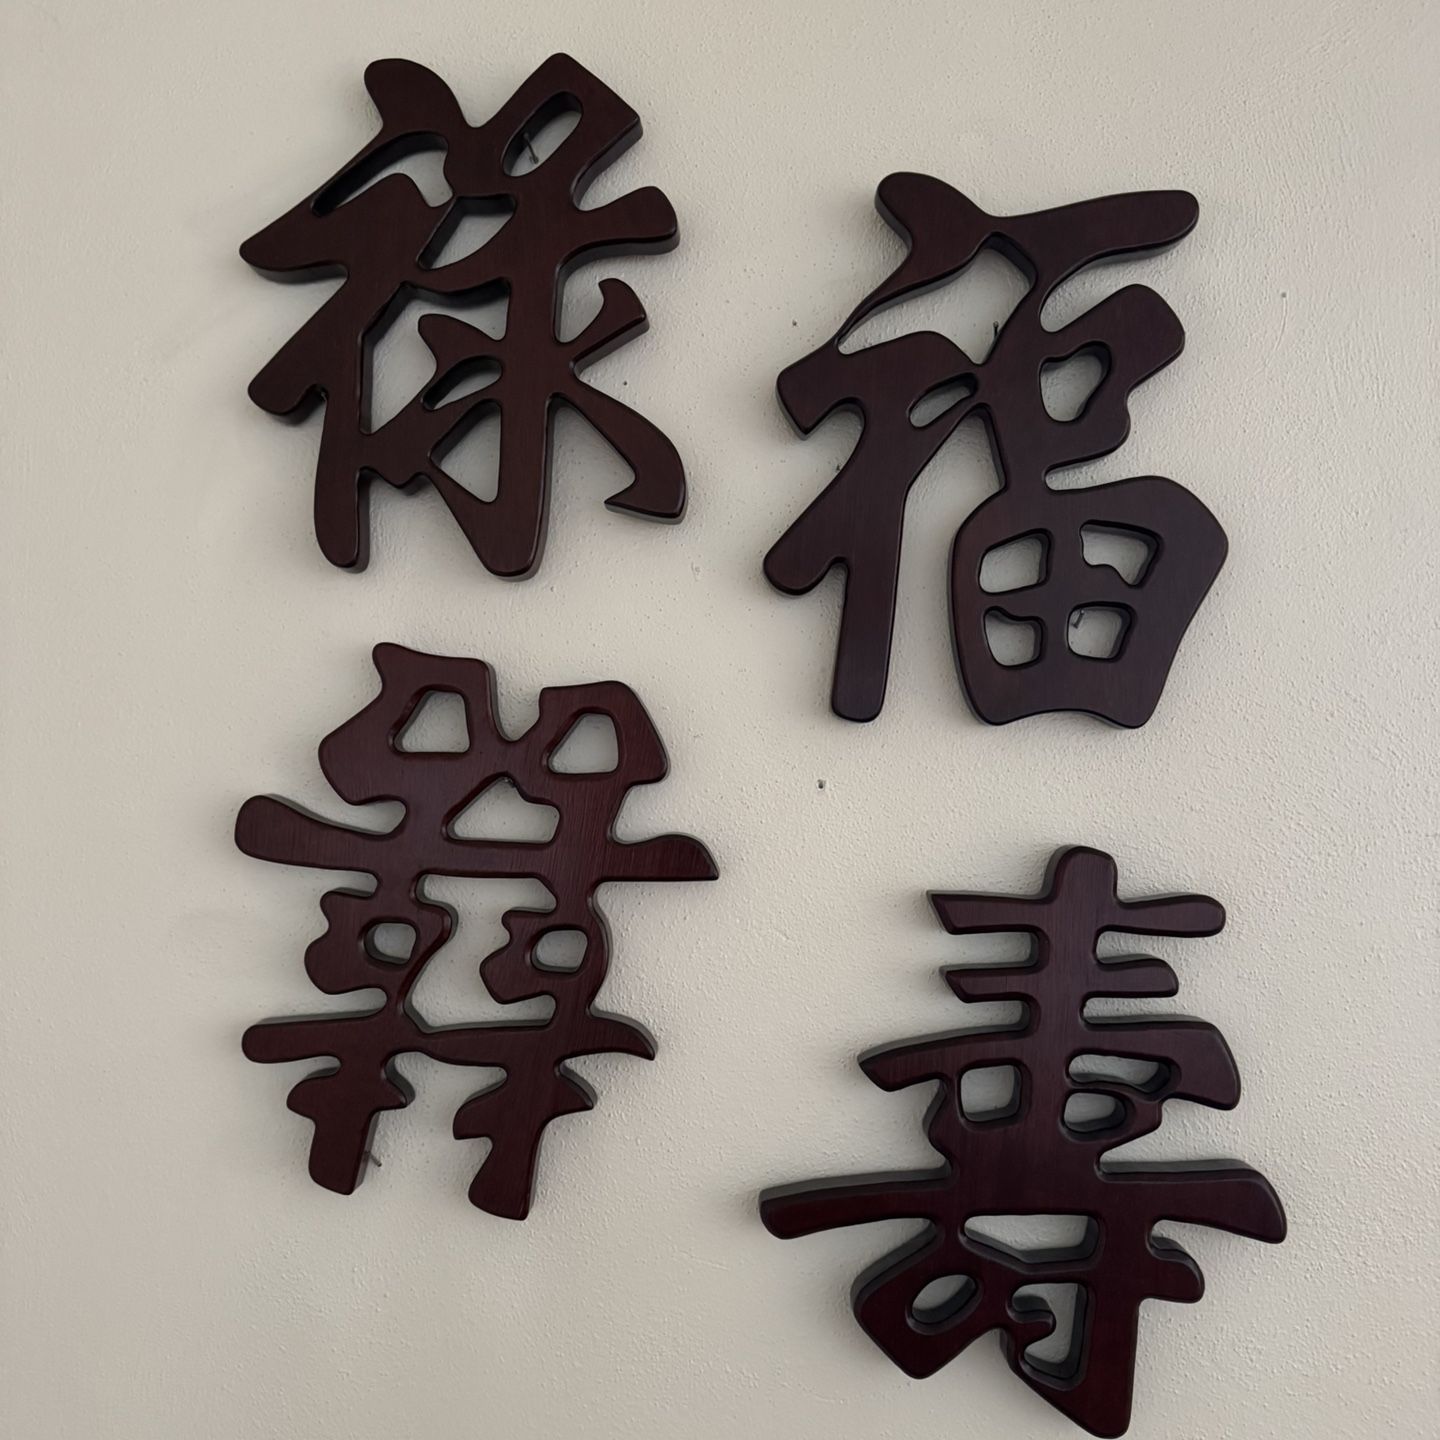 福祿
壽囍